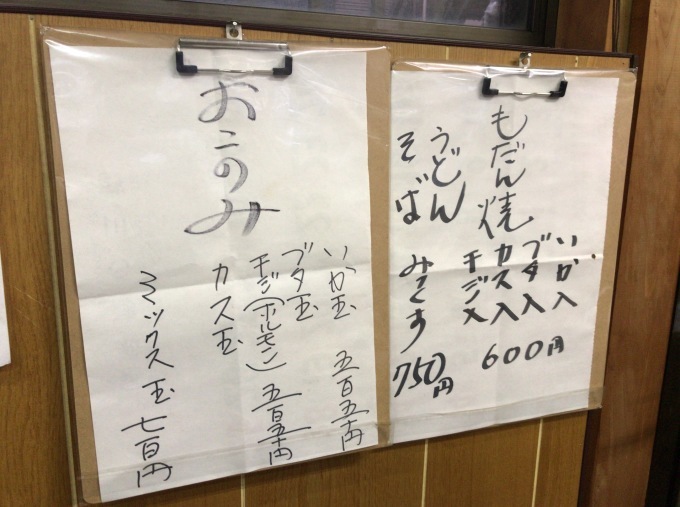 もだん焼
いか入
ブタ入
カス入
チジ入
600円
うどん
そば
750円
おこのみ
いか玉 五百五十円
ブタ玉
チジ(ホルモン) 五百五十円
カス玉
ミックス玉 七百円